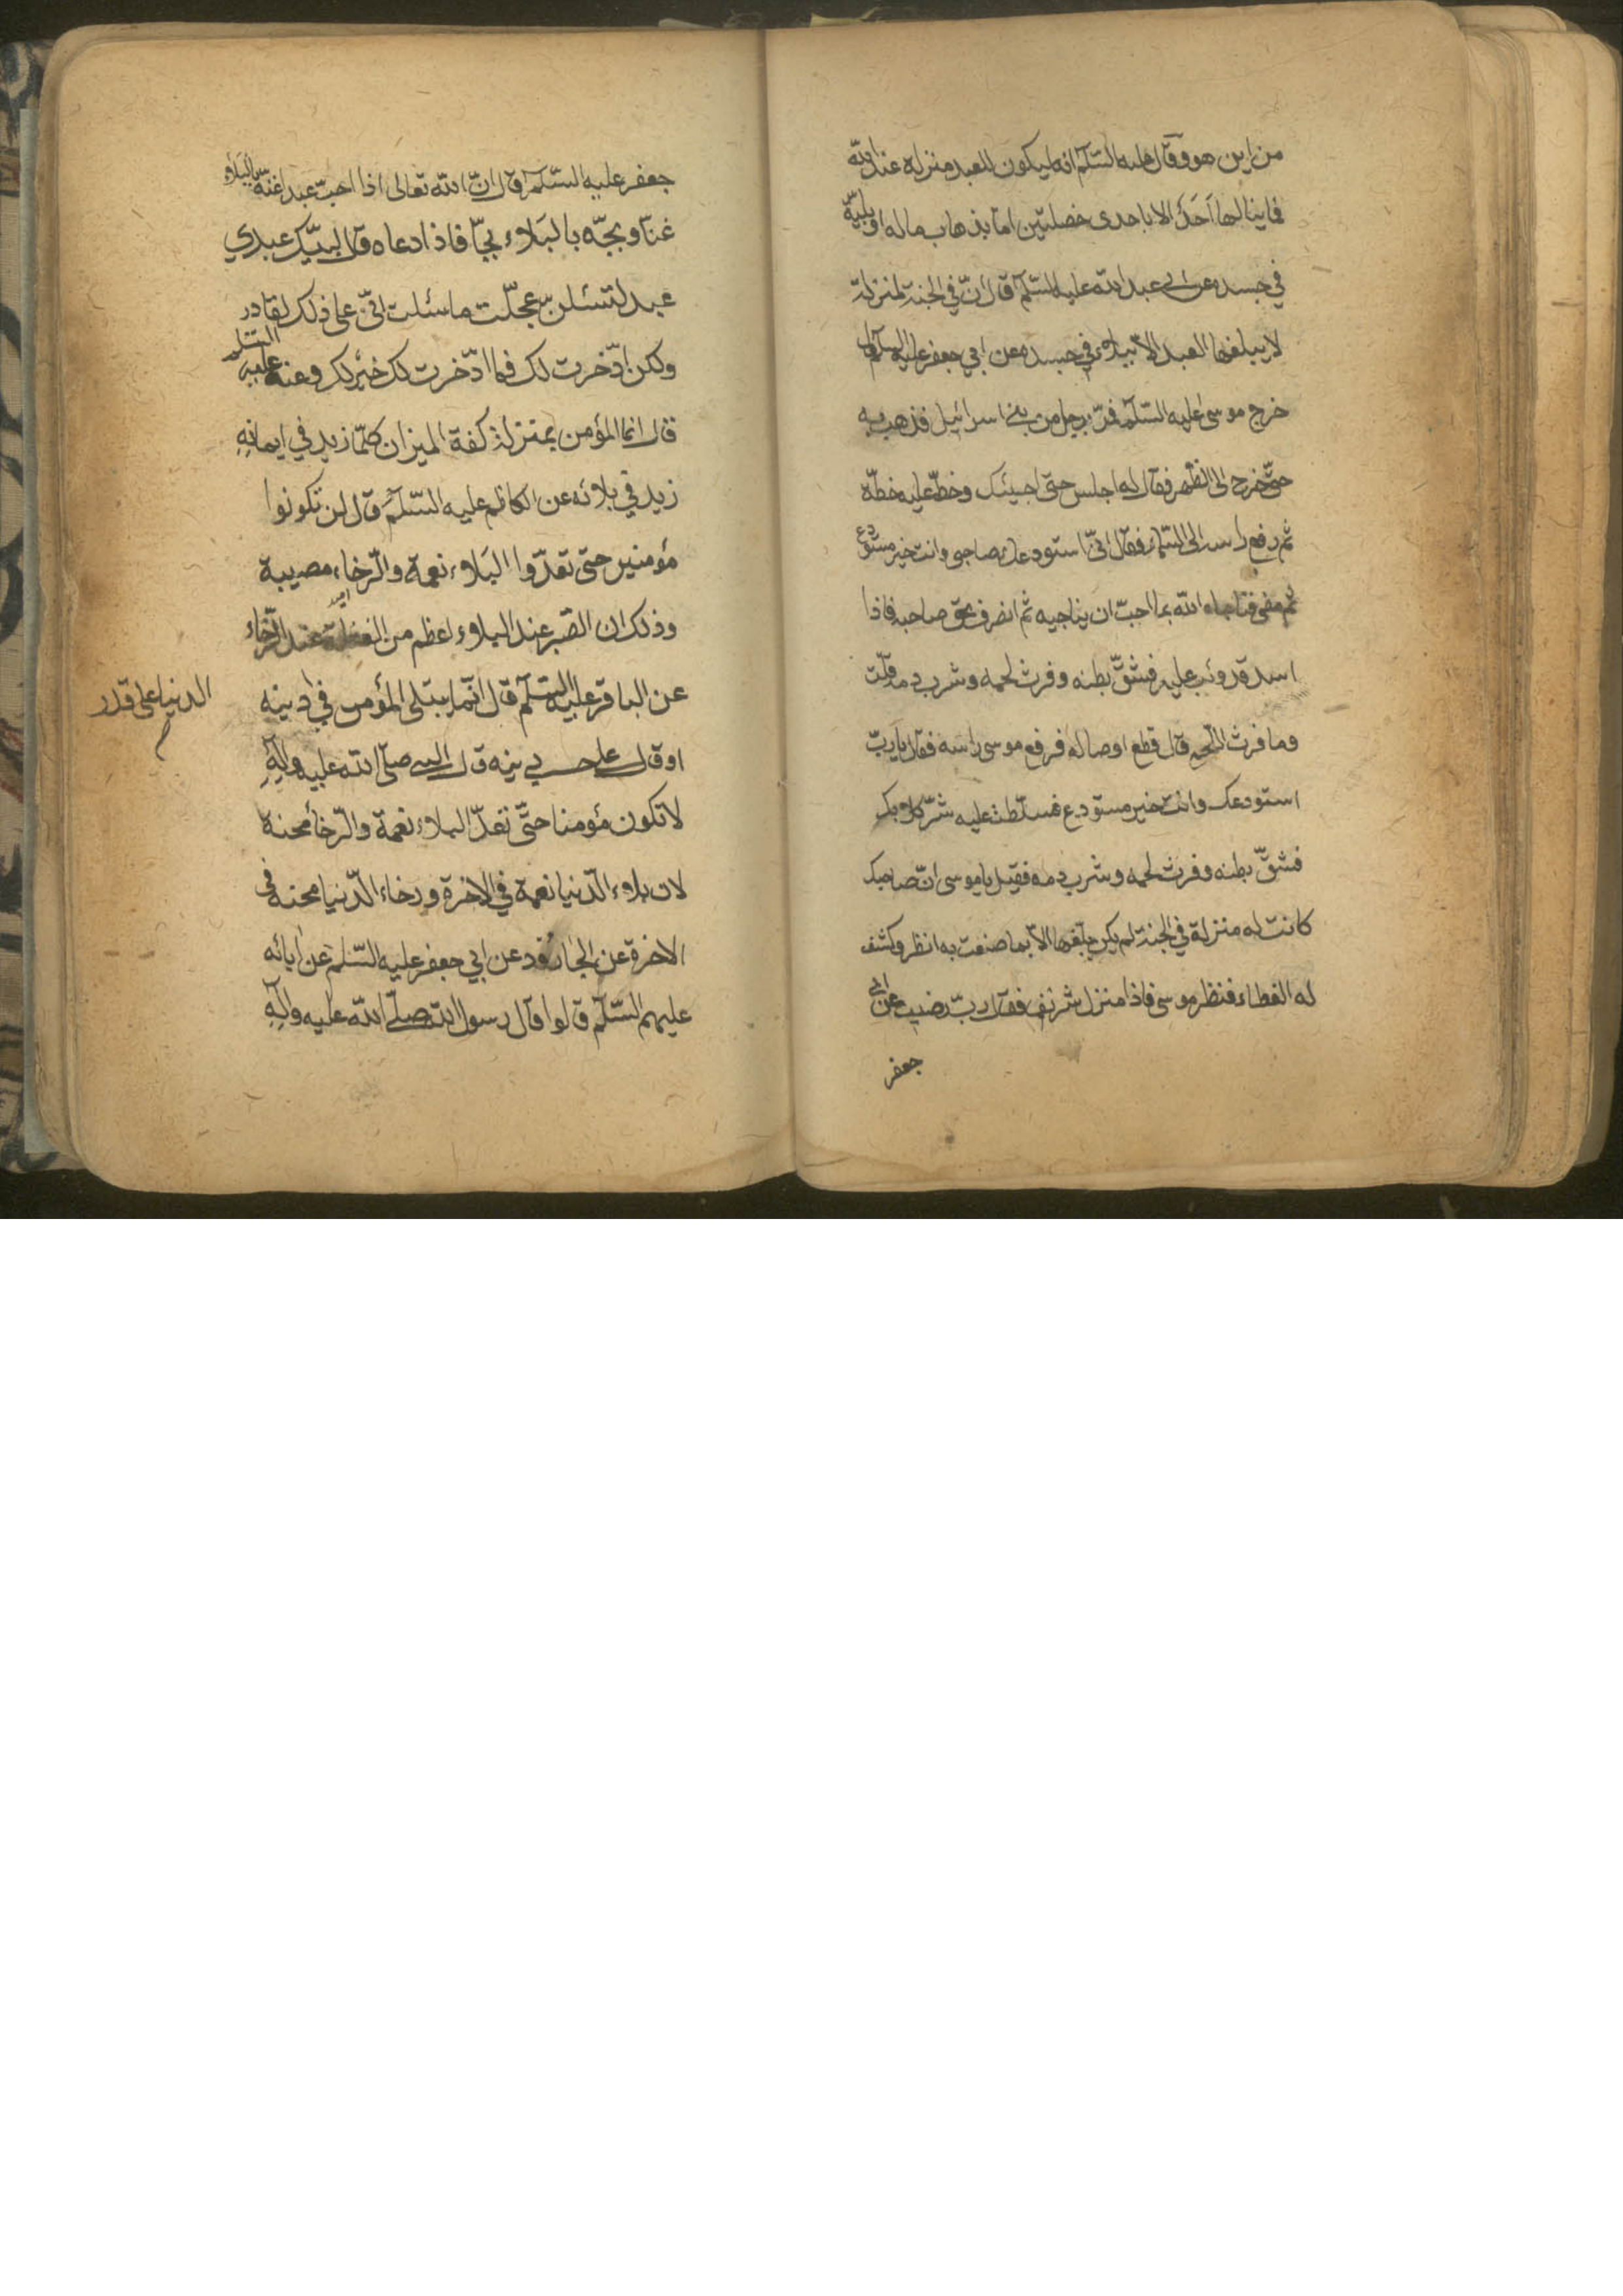 من اين هو وقال عليه السّلم انه ليكون للعبد منزله عند الله
فما ينالها اَحَدٌ الا باحدى خصلتين امّا بذهاب ماله او بليّة
في جسده وعن ابى عبد الله عليه السّلم قال انّ في الجنة لمنزلة
لا يبلغها العبد الا ببلاء في جسده وعن ابي جعفر عليه السلم قال
خرج موسى عليه السّلم فمرّ برجل من بنى اسرائيل فذهب به
حتّى خرج الى الظّهر فقال له اجلس حتى اجيئك وخطّ عليه خطّة
ثم رفع راسه الى السّماء فقال انّى استودعك صاحبى وانت خير مستودع
ثم مضى فناجاه الله بما احبّ ان يناجيه ثم انصرف نحو صاحبه فاذا
اسد قد وثب عليه فشقّ بطنه وفرث لحمه وشرب دمه قلت
وما فرث اللّحم قال قطع اوصاله فرفع موسى راسه فقال يا ربّ
استودعتك وانت خير مستودع فسلّطت عليه شرّ كلابك
فشقّ بطنه وفرث لحمه وشرب دمه فقيل يا موسى انّ صاحبك
كانت له منزلة في الجنة لم يكن يبلّغها الاّ بما صنعت به انظر وكشف
له الغطاء فنظر موسى فاذا منزل شريف فقال ربّ رضيت وعن ابي
جعفر
جعفر عليه السّلم قال انّ الله تعالى اذا احبّ عبدا غتّه بالبَلاء
غتّا وثجّه بالبَلاء ثجّا فاذا دعاه قال لبيّك عبدي
عبد لتسئلنّ عجّلت ما سئلت انّى على ذلك لقادر
ولكن ادّخرت لك فما ادّخرت لك خير لك وعنه عليه السّلم
قال انما المؤمن بمنزلة كفة الميزان كلّما زيد في ايمانِهِ
زيد في بلائه عن الكاظم عليه السّلم قال لن تكونوا
مؤمنين حتى تعدّوا البَلاء نعمة والرّخاء مصيبة
وذلك ان الصّبر عند البلاء اعظم من الغفلة عند الرّخاء
عن الباقر عليه السّلم قال انّما يبتلى المؤمن في دينه
الدنيا على قدر
او قال على حسب دينه قال النبى صلّى الله عليه وآلِهِ
لا تكون مؤمنا حتّى تعدّ البلاء نعمة والرّخاء محنة
لان بلاء الدّنيا نعمة في الاخرة ورخاء الدّنيا محنة فى
الاخرة عن الجارود عن ابي جعفر عليه السّلم عن ابائه
عليهم السّلم قالوا قال رسول الله صلّى الله عليه وآلِهِ